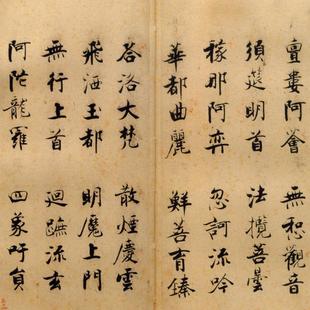 亶婁阿薈 無惒觀音
須莚明首 法攬菩曇
稼那阿弈 忽訶流吟
華都曲麗 鮮菩育臻
荅洛大梵 散煙慶雲
飛洒玉都 明魔上門
無行上首 迴蹠流玄
阿陁龍羅 四象吁員